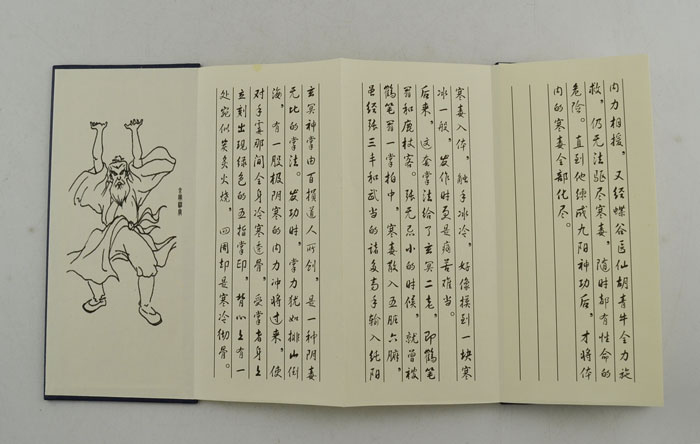 玄冥神掌由百损道人所创，是一种阴毒
无比的掌法。发功时，掌力犹如排山倒
海，有一股极阴寒的内力冲将过来，使
对手霎那间全身冷寒透骨，受掌者身上
立刻出现绿色的五指掌印，背心上有一
处宛似炭炙火烧，四周却是寒冷彻骨。
寒毒入体，触手冰冷，好像摸到一块寒
冰一般，发作时更是痛苦难当。
后来，这套掌法给了玄冥二老，即鹤笔
翁和鹿杖客。张无忌小的时候，就曾被
鹤笔翁一掌拍中，寒毒散入五脏六腑，
虽经张三丰和武当的诸多高手输入纯阳
内力相援，又经蝶谷医仙胡青牛全力施
救，仍无法驱尽寒毒，随时都有性命的
危险。直到他练成九阳神功后，才将体
内的寒毒全部化尽。